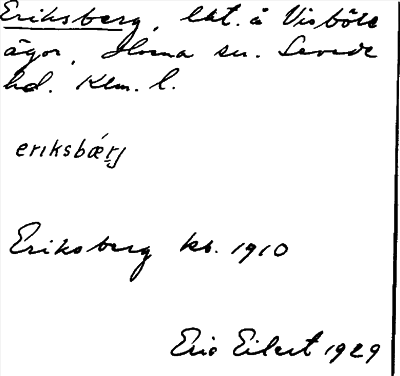 Eriksberg, lht. å Visböle
ägor, Horna sn. Sevede
hd. Klm. l.
eriksbǽrj
Eriksberg kb. 1910
Eric Eilert 1929